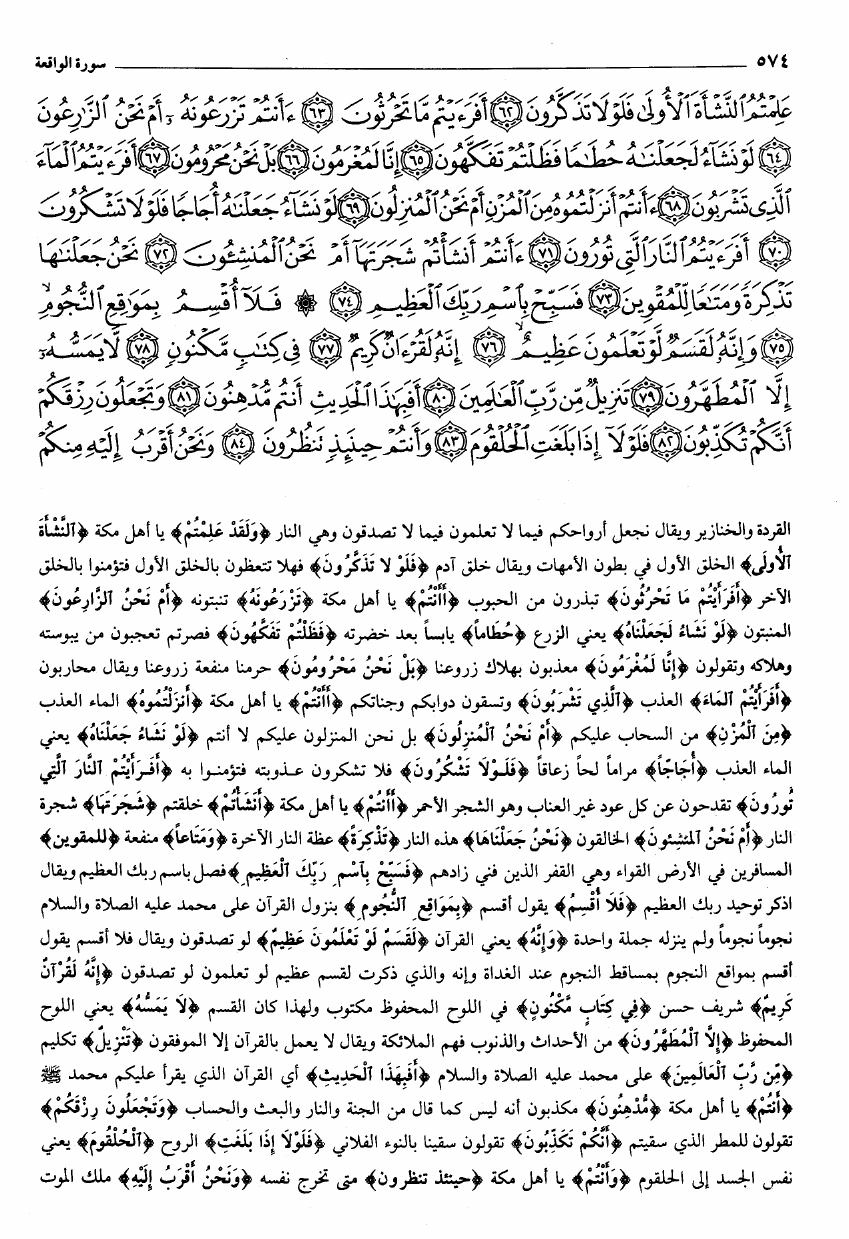 ٥٧٤ سورة الواقعة
عَلِمْتُمُ ٱلنَّشْأَةَ ٱلْأُولَىٰ فَلَوْلَا تَذَكَّرُونَ ﴿٦٢﴾ أَفَرَءَيْتُم مَّا تَحْرُثُونَ ﴿٦٣﴾ ءَأَنتُمْ تَزْرَعُونَهُۥٓ أَمْ نَحْنُ ٱلزَّٰرِعُونَ
﴿٦٤﴾ لَوْ نَشَآءُ لَجَعَلْنَٰهُ حُطَٰمًا فَظَلْتُمْ تَفَكَّهُونَ ﴿٦٥﴾ إِنَّا لَمُغْرَمُونَ ﴿٦٦﴾ بَلْ نَحْنُ مَحْرُومُونَ ﴿٦٧﴾ أَفَرَءَيْتُمُ ٱلْمَآءَ
ٱلَّذِى تَشْرَبُونَ ﴿٦٨﴾ ءَأَنتُمْ أَنزَلْتُمُوهُ مِنَ ٱلْمُزْنِ أَمْ نَحْنُ ٱلْمُنزِلُونَ ﴿٦٩﴾ لَوْ نَشَآءُ جَعَلْنَٰهُ أُجَاجًا فَلَوْلَا تَشْكُرُونَ
﴿٧٠﴾ أَفَرَءَيْتُمُ ٱلنَّارَ ٱلَّتِى تُورُونَ ﴿٧١﴾ ءَأَنتُمْ أَنشَأْتُمْ شَجَرَتَهَآ أَمْ نَحْنُ ٱلْمُنشِـُٔونَ ﴿٧٢﴾ نَحْنُ جَعَلْنَٰهَا
تَذْكِرَةً وَمَتَٰعًا لِّلْمُقْوِينَ ﴿٧٣﴾ فَسَبِّحْ بِٱسْمِ رَبِّكَ ٱلْعَظِيمِ ﴿٧٤﴾ ۞ فَلَآ أُقْسِمُ بِمَوَٰقِعِ ٱلنُّجُومِ
﴿٧٥﴾ وَإِنَّهُۥ لَقَسَمٌ لَّوْ تَعْلَمُونَ عَظِيمٌ ﴿٧٦﴾ إِنَّهُۥ لَقُرْءَانٌ كَرِيمٌ ﴿٧٧﴾ فِى كِتَٰبٍ مَّكْنُونٍ ﴿٧٨﴾ لَّا يَمَسُّهُۥٓ
إِلَّا ٱلْمُطَهَّرُونَ ﴿٧٩﴾ تَنزِيلٌ مِّن رَّبِّ ٱلْعَٰلَمِينَ ﴿٨٠﴾ أَفَبِهَٰذَا ٱلْحَدِيثِ أَنتُم مُّدْهِنُونَ ﴿٨١﴾ وَتَجْعَلُونَ رِزْقَكُمْ
أَنَّكُمْ تُكَذِّبُونَ ﴿٨٢﴾ فَلَوْلَآ إِذَا بَلَغَتِ ٱلْحُلْقُومَ ﴿٨٣﴾ وَأَنتُمْ حِينَئِذٍ تَنظُرُونَ ﴿٨٤﴾ وَنَحْنُ أَقْرَبُ إِلَيْهِ مِنكُمْ
القردة والخنازير ويقال نجعل أرواحكم فيما لا تعلمون فيما لا تصدقون وهي النار ﴿وَلَقَدْ عَلِمْتُمْ﴾ يا أهل مكة ﴿ٱلنَّشْأَةَ
ٱلْأُولَى﴾ الخلق الأول في بطون الأمهات ويقال خلق آدم ﴿فَلَوْ لا تَذَكَّرُونَ﴾ فهلا تتعظون بالخلق الأول فتؤمنوا بالخلق
الأخر ﴿أَفَرَأَيْتُمْ مَا تَحْرُثُونَ﴾ تبذرون من الحبوب ﴿أَأَنْتُمْ﴾ يا أهل مكة ﴿تَزْرَعُونَهُ﴾ تنبتونه ﴿أَمْ نَحْنُ ٱلزَّارِعُونَ﴾
المنبتون ﴿لَوْ نَشَاءُ لَجَعَلْنَاهُ﴾ يعني الزرع ﴿حُطَاماً﴾ يابساً بعد خضرته ﴿فَظَلْتُمْ تَفَكَّهُونَ﴾ فصرتم تعجبون من يبوسته
وهلاكه وتقولون ﴿إِنَّا لَمُغْرَمُونَ﴾ معذبون بهلاك زروعنا ﴿بَلْ نَحْنُ مَحْرُومُونَ﴾ حرمنا منفعة زروعنا ويقال محاربون
﴿أَفَرَأَيْتُمْ ٱلْمَاءَ﴾ العذب ﴿ٱلَّذِي تَشْرَبُونَ﴾ وتسقون دوابكم وجناتكم ﴿أَأَنْتُمْ﴾ يا أهل مكة ﴿أَنزَلْتُمُوهُ﴾ الماء العذب
﴿مِنَ ٱلْمُزْنِ﴾ من السحاب عليكم ﴿أَمْ نَحْنُ ٱلْمُنزِلُونَ﴾ بل نحن المنزلون عليكم لا أنتم ﴿لَوْ نَشَاءُ جَعَلْنَاهُ﴾ يعني
الماء العذب ﴿أُجَاجاً﴾ مراماً لحاً زعاقاً ﴿فَلَوْلَا تَشْكُرُونَ﴾ فلا تشكرون عذوبته فتؤمنوا به ﴿أَفَرَأَيْتُمْ ٱلنَّارَ ٱلَّتِي
تُورُونَ﴾ تقدحون عن كل عود غير العناب وهو الشجر الأحمر ﴿أَأَنْتُمْ﴾ يا أهل مكة ﴿أَنشَأْتُمْ﴾ خلقتم ﴿شَجَرَتَهَا﴾ شجرة
النار ﴿أَمْ نَحْنُ ٱلمُنْشِئُونَ﴾ الخالقون ﴿نَحْنُ جَعَلْنَاهَا﴾ هذه النار ﴿تَذْكِرَةً﴾ عظة النار الآخرة ﴿وَمَتَاعاً﴾ منفعة ﴿للمقوين﴾
المسافرين في الأرض القواء وهي القفر الذين فني زادهم ﴿فَسَبِّحْ بِٱسْمِ رَبِّكَ ٱلْعَظِيمِ﴾ فصل باسم ربك العظيم ويقال
اذكر توحيد ربك العظيم ﴿فَلَا أُقْسِمُ﴾ يقول أقسم ﴿بِمَوَاقِعِ ٱلنُّجُومِ﴾ بنزول القرآن على محمد عليه الصلاة والسلام
نجوماً نجوماً ولم ينزله جملة واحدة ﴿وَإِنَّهُ﴾ يعني القرآن ﴿لَقَسَمٌ لَوْ تَعْلَمُونَ عَظِيمٌ﴾ لو تصدقون ويقال فلا أقسم يقول
أقسم بمواقع النجوم بمساقط النجوم عند الغداة وإنه والذي ذكرت لقسم عظيم لو تعلمون لو تصدقون ﴿إِنَّهُ لَقُرْآنٌ
كَرِيمٌ﴾ شريف حسن ﴿فِي كِتَابٍ مَّكْنُونٍ﴾ في اللوح المحفوظ مكتوب ولهذا كان القسم ﴿لَا يَمَسُّهُ﴾ يعني اللوح
المحفوظ ﴿إِلَّا ٱلْمُطَهَّرُونَ﴾ من الأحداث والذنوب فهم الملائكة ويقال لا يعمل بالقرآن إلا الموفقون ﴿تَنْزِيلٌ﴾ تكليم
﴿مِّن رَّبِّ ٱلْعَالَمِينَ﴾ على محمد عليه الصلاة والسلام ﴿أَفَبِهَذَا ٱلْحَدِيثِ﴾ أي القرآن الذي يقرأ عليكم محمد ﷺ
﴿أَنْتُمْ﴾ يا أهل مكة ﴿مُّدْهِنُونَ﴾ مكذبون أنه ليس كما قال من الجنة والنار والبعث والحساب ﴿وَتَجْعَلُونَ رِزْقَكُمْ﴾
تقولون للمطر الذي سقيتم ﴿أَنَّكُمْ تَكَذِّبُونَ﴾ تقولون سقينا بالنوء الفلاني ﴿فَلَوْلَا إِذَا بَلَغَتِ﴾ الروح ﴿ٱلْحُلْقُومَ﴾ يعني
نفس الجسد إلى الحلقوم ﴿وَأَنْتُمْ﴾ يا أهل مكة ﴿حينئذ تنظرون﴾ متى تخرج نفسه ﴿وَنَحْنُ أَقْرَبُ إِلَيْهِ﴾ ملك الموت